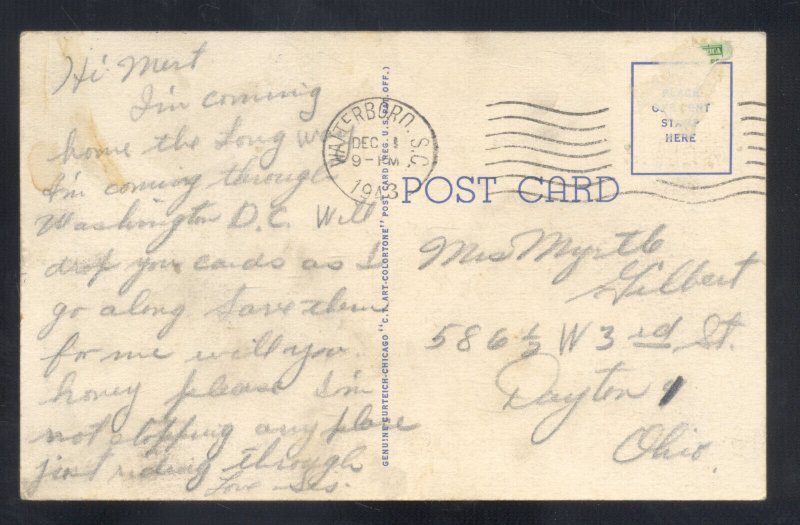 Hi Mert
I'm coming
home the Long way
I'm coming through
Washington D.C. Will
drop you cards as I
go along Save them
for me will you
honey please I'm
not stopping any place
just riding through
Love - Sis.
GENUINE CURTEICH-CHICAGO "C.T. ART-COLORTONE" POST CARD (REG. U.S. PAT. OFF.)
WALTERBORO, S.C.
DEC 1
9-PM
1943
PLACE
ONE CENT
STAMP
HERE
POST CARD
Mrs Myrtle
Gilbert
586 ½ W 3rd St.
Dayton
Ohio.